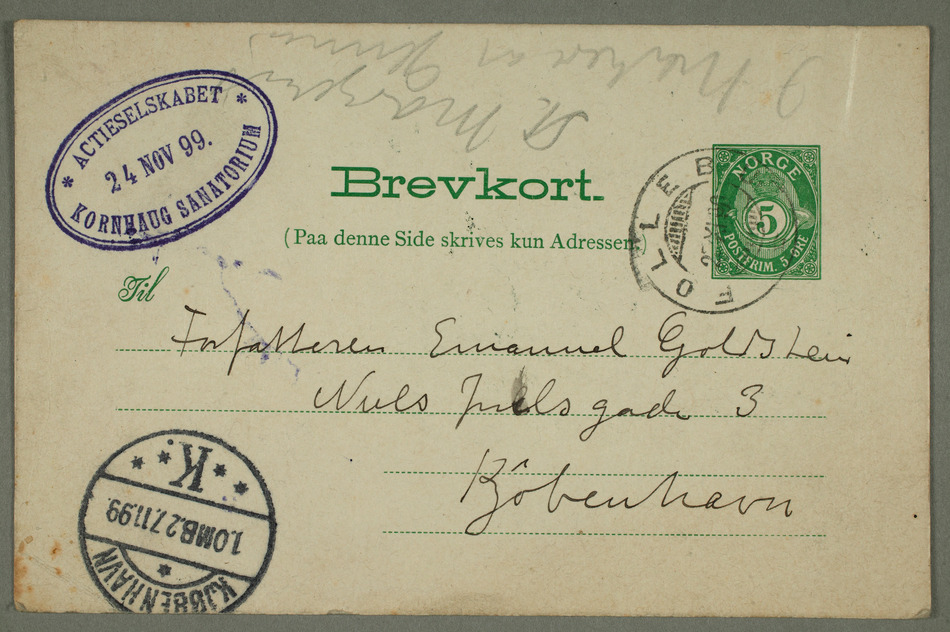 * ACTIESELSKABET *
24 NOV 99.
KORNHAUG SANATORIUM
Brevkort.
(Paa denne Side skrives kun Adressen.)
NORGE
5
POSTFRIM. 5 ØRE
FOLLEB
Til
Forfatteren Emanuel Goldstein
Niels Juels gade 3
Köbenhavn
K.
1.OMB.27.11.99.
KJØBENHAVN